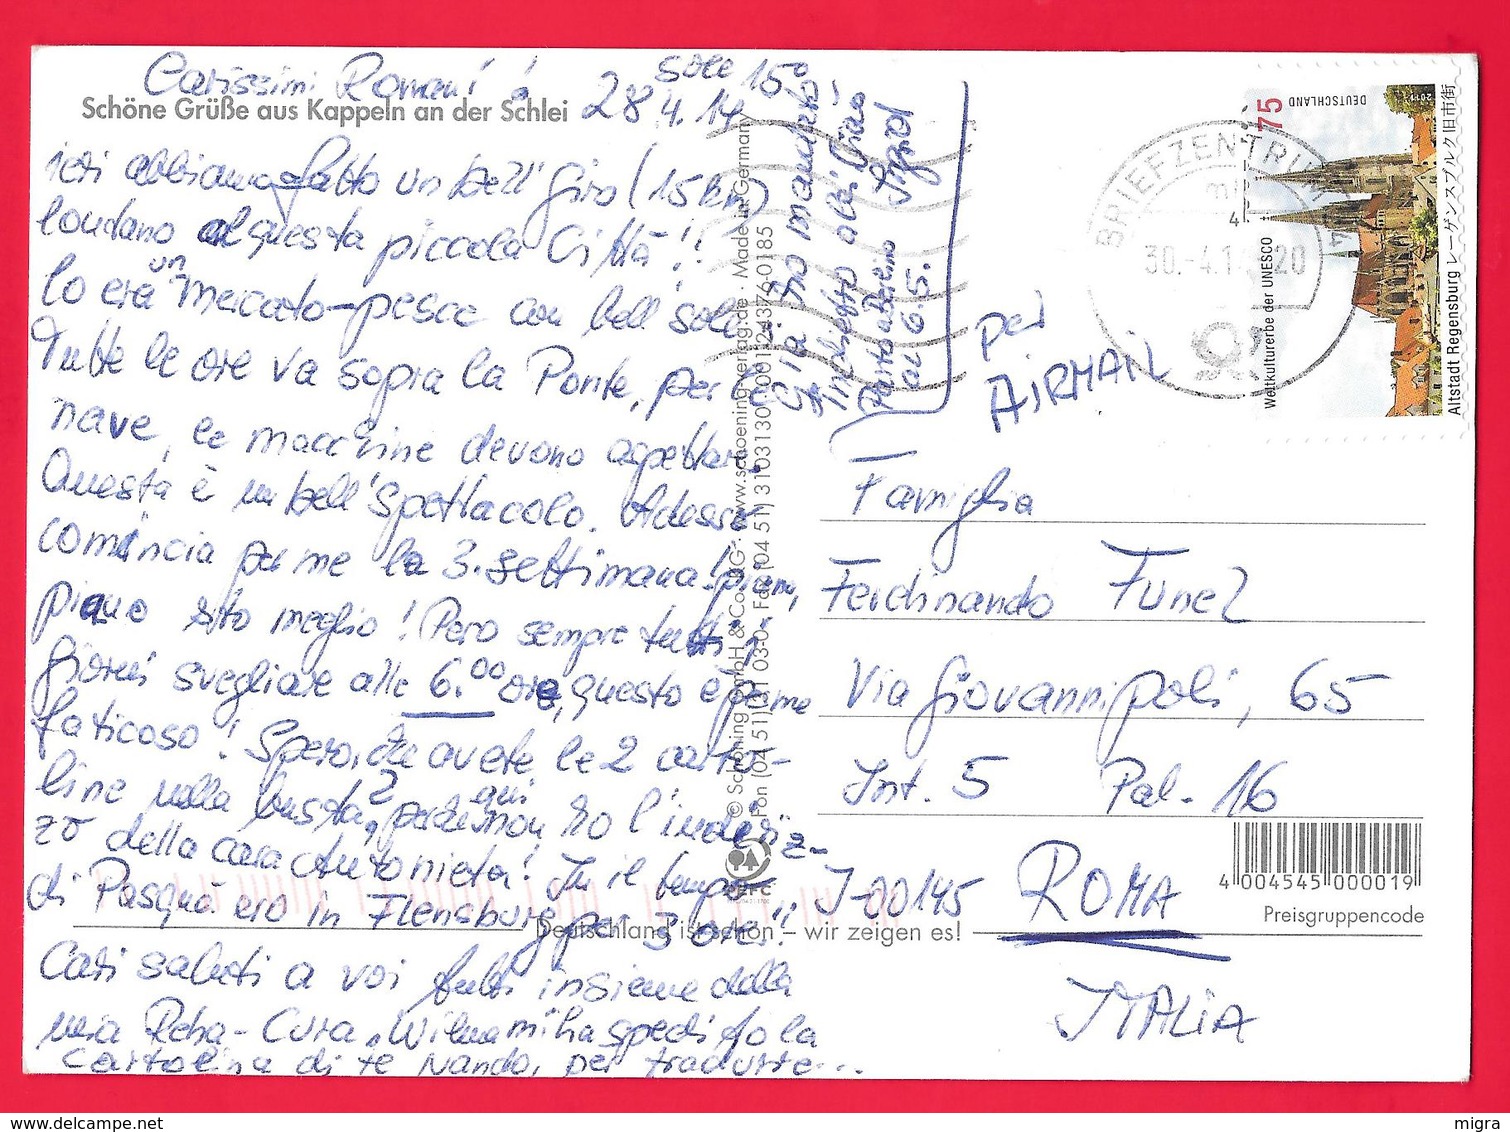 Carissimi Romani
sole 15°
28.4.14
Schöne Grüße aus Kappeln an der Schlei
ieri abbiamo fatto un bell' Giro (15 km)
londano questa piccola Città!!
Io era un Mercato-pesce con bell sole
Tutte le ore va sopra la Ponte, per le
nave, le macchine devono aspettare
Questa è un bell' Spettacolo. Adesso
comincia per me la 3. settimana! piano,
piano sto meglio! Pero sempre tutti i
Giorni svegliare alle 6.00 ore, questo è per me
faticoso! Spero, che avete le 2 carto-
line nella busta? perche qui non ho l'indiriz-
zo della cara Antonieta! In il tempo
di Pasqua ero in Flensburg per 3 ore!!
Cari saluti a voi tutti insieme dalla
mia Reha-Cura, Wilma mi ha spedito la
cartolina di te Nando, per tradurre...
Gia ho mandato
indietro alei. Ciao
Parto a Berlino Sigrid
al 6.5.
© Schöning GmbH & Co. KG · www.schoening-verlag.de · Made in Germany
Fon (04 51) 31 03-0 · Fax (04 51) 31 03 130
Deutschland ist schön – wir zeigen es!
per
AIRMAIL
BRIEFZENTRUM
30.-4.1 20
DEUTSCHLAND
75
2011
Weltkulturerbe der UNESCO
Altstadt Regensburg レーゲンスブルク旧市街
Famiglia
Ferdinando Funel
Via Giovannipoli, 65
Int. 5 Pal. 16
I-00145 ROMA
ITALIA
4 004545 000019
Preisgruppencode
migra